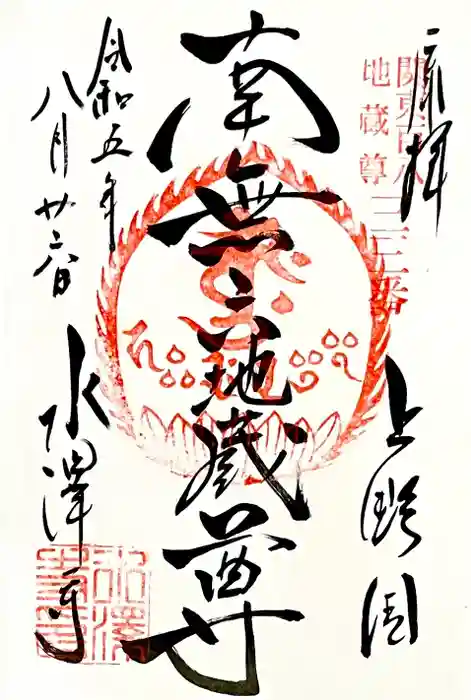 奉拝
關東百八
地蔵尊
三三番
上野国
南無六地蔵尊
令和五年
八月廿六日
水澤寺
水澤
寺印